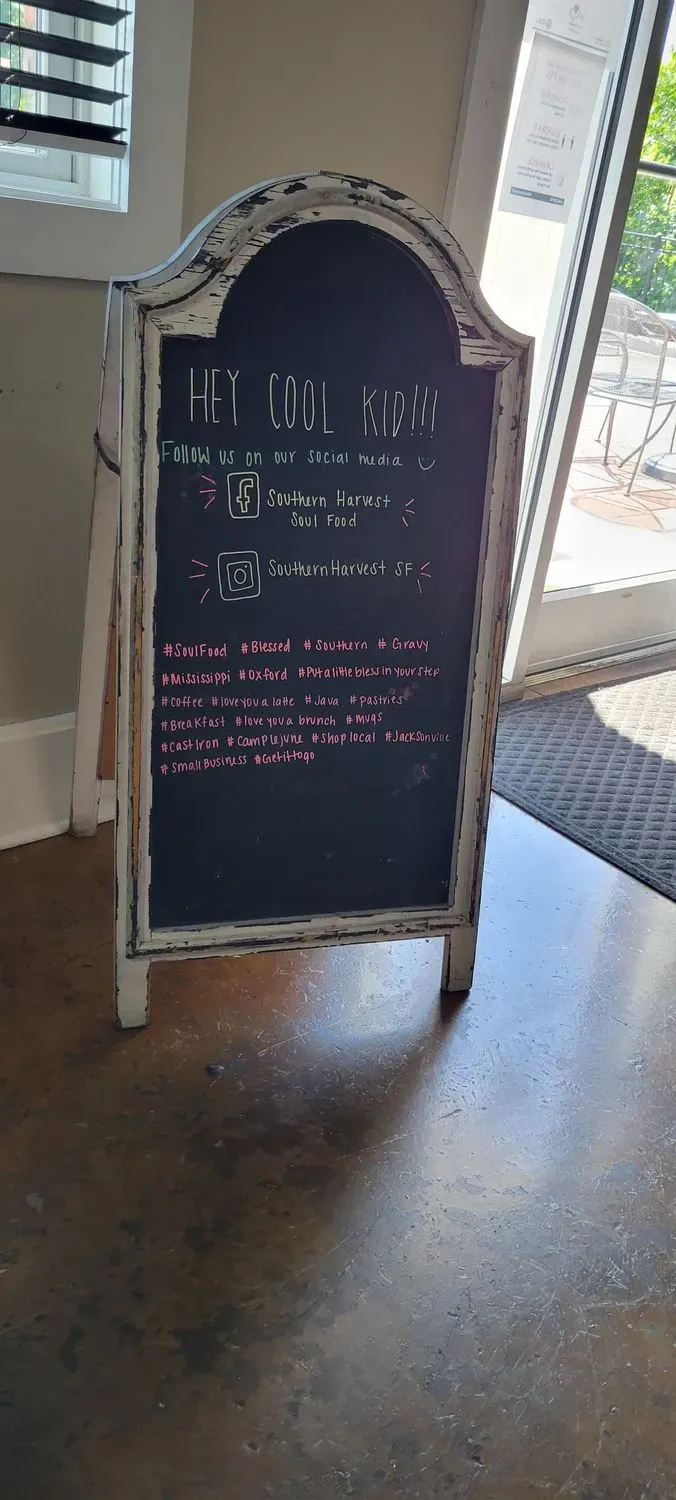 HEY COOL KID!!!
Follow us on our social media
Southern Harvest
Soul Food
SouthernHarvest SF
#SoulFood #Blessed #Southern #Gravy
#Mississippi #Oxford #Putalittleblessinyourstep
#coffee #loveyoualatte #Java #pastries
#Breakfast #loveyouabrunch #mugs
#CastIron #CampLejune #shoplocal #Jacksonville
#SmallBusiness #Getittogo